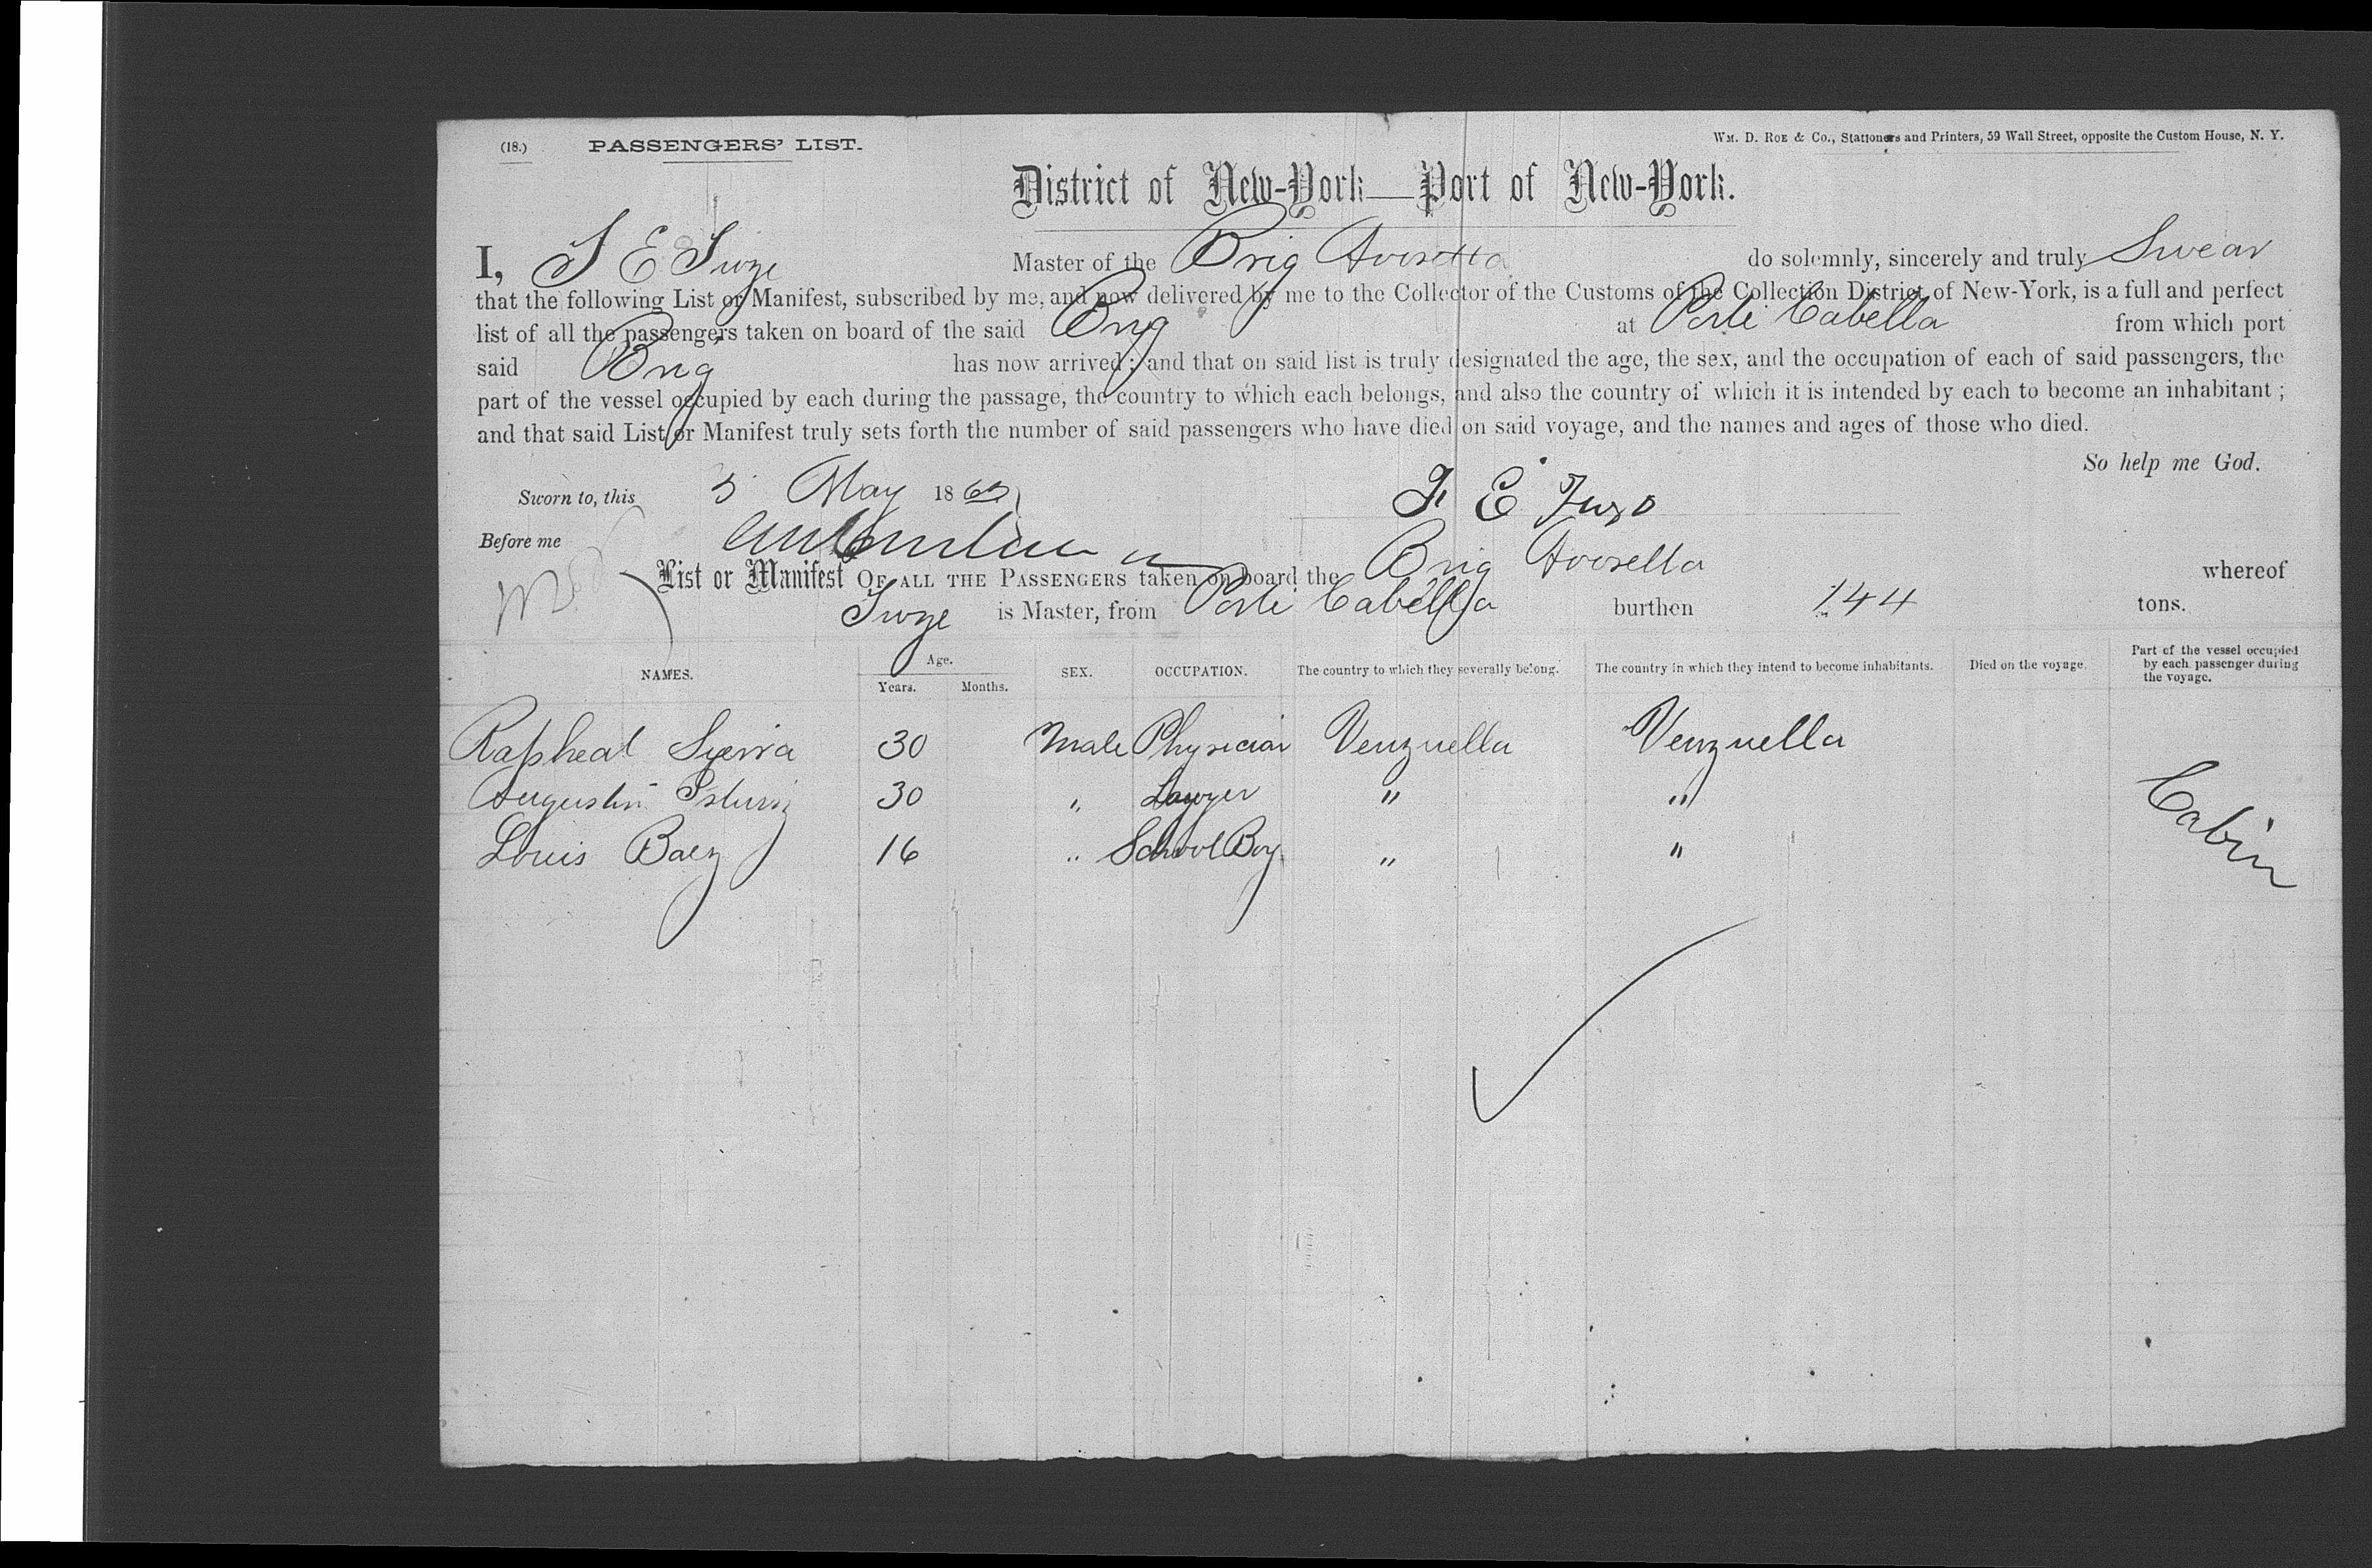 (18.) PASSENGERS' LIST. WM. D. ROE & Co., Stationers and Printers, 59 Wall Street, opposite the Custom House, N. Y.
District of New-York—Port of New-York.
I, S E Master of the Brig do solemnly, sincerely and truly Swear
that the following List or Manifest, subscribed by me, and now delivered by me to the Collector of the Customs of the Collection District of New-York, is a full and perfect
list of all the passengers taken on board of the said Brig at Porte Cabella from which port
said Brig has now arrived; and that on said list is truly designated the age, the sex, and the occupation of each of said passengers, the
part of the vessel occupied by each during the passage, the country to which each belongs, and also the country of which it is intended by each to become an inhabitant;
and that said List or Manifest truly sets forth the number of said passengers who have died on said voyage, and the names and ages of those who died.
So help me God.
Sworn to, this 5 May 186
Before me
List or Manifest OF ALL THE PASSENGERS taken on board the Brig whereof
is Master, from Porte Cabella burthen 144 tons.
NAMES. Age. Years. Months. SEX. OCCUPATION. The country to which they severally belong. The country in which they intend to become inhabitants. Died on the voyage. Part of the vessel occupied by each passenger during the voyage.
Rapheal Sierra 30 Male Physician Venzuella Venzuella
Augustin 30 " Lawyer " "
Louis Baez 16 " School Boy " "
Cabin